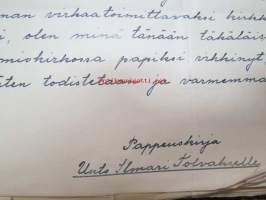 man virkaatoimittavaksi kirkk
i, olen minä tänään täkäläis
omiokirkossa papiksi vihkinyt
ten todistetaan ja varmemma
Pappeuskirja
Unto Ilmari Tolvahselle